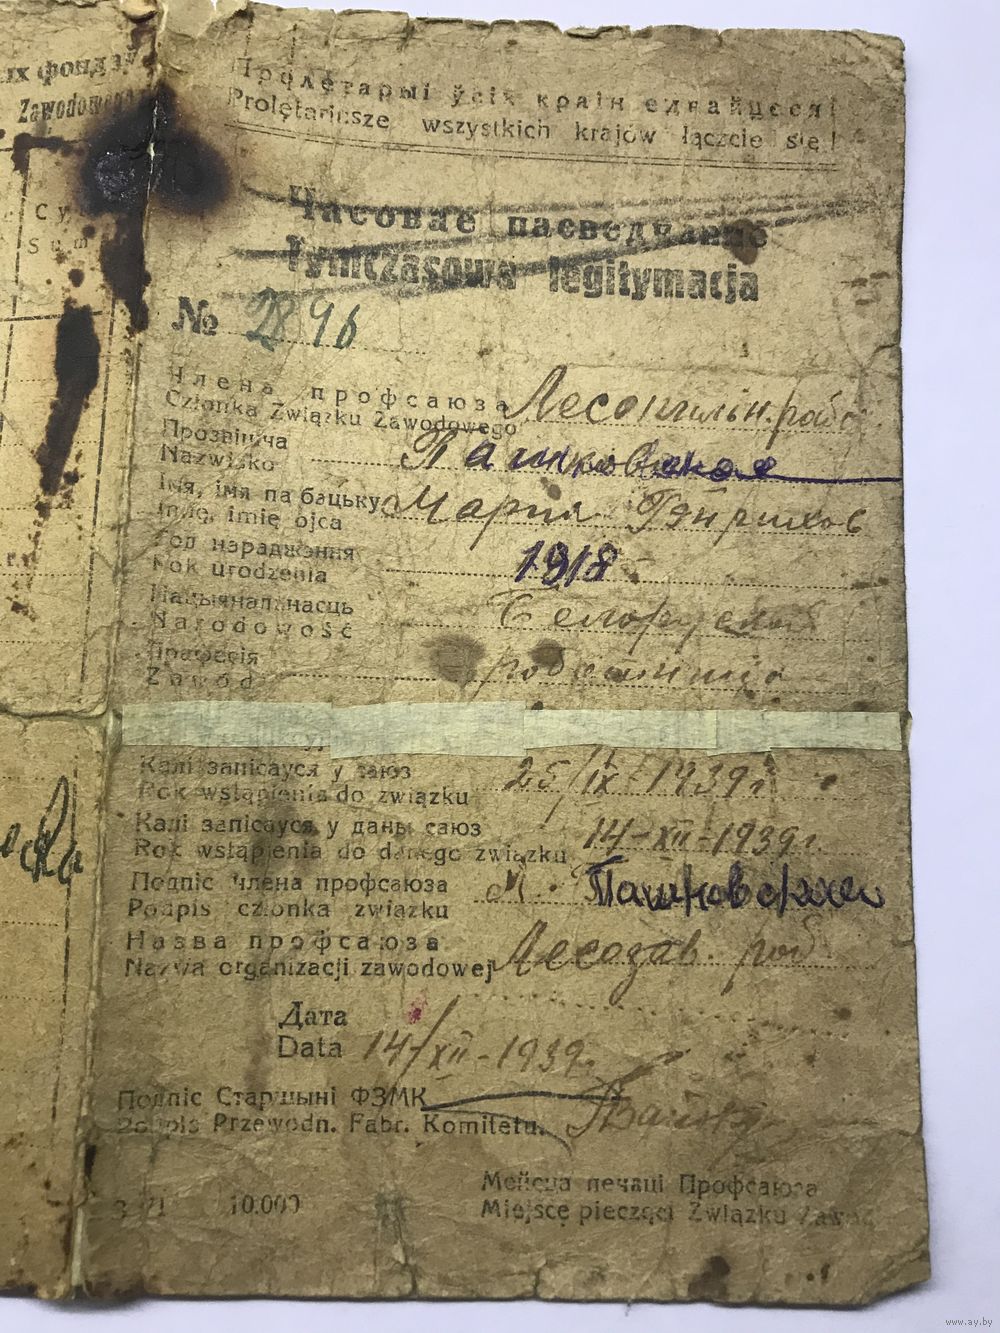 ых фондаў
Zawodowego
Су
Sum
Пролетарыі ўсіх краін еднайцеся!
Proletariusze wszystkich krajów łączcie się!
Часовае пасведчанне
Tymczasowa legitymacja
№ 2896
Члена профсаюза Лесопильн. рабо
Członka Związku Zawodowego
Прозвішча
Nazwisko Пашковская
Імя, імя па бацьку Мария Гэнрихов
Imię, imię ojca
Год нараджэння 1918
Rok urodzenia
Нацыянальнасць
Narodowość
Прафесія
Zawód
Калі запісауся у саюз 25/IX-1939г
Rok wstąpienia do związku
Калі запісауся у даны саюз 14-XII-1939г.
Rok wstąpienia do danego związku
Подпіс члена профсаюза М. Пашковская
Podpis członka związku
Назва профсаюза Лесозав. раб
Nazwa organizacji zawodowej
Дата
Data 14/XII-1939г.
Подпіс Старшыні ФЗМК
Podpis Przewodn. Fabr. Komitetu.
Мейсца печаці Профсаюза
Miejsce pieczęci Związku Zawod
10.000
www.ay.by